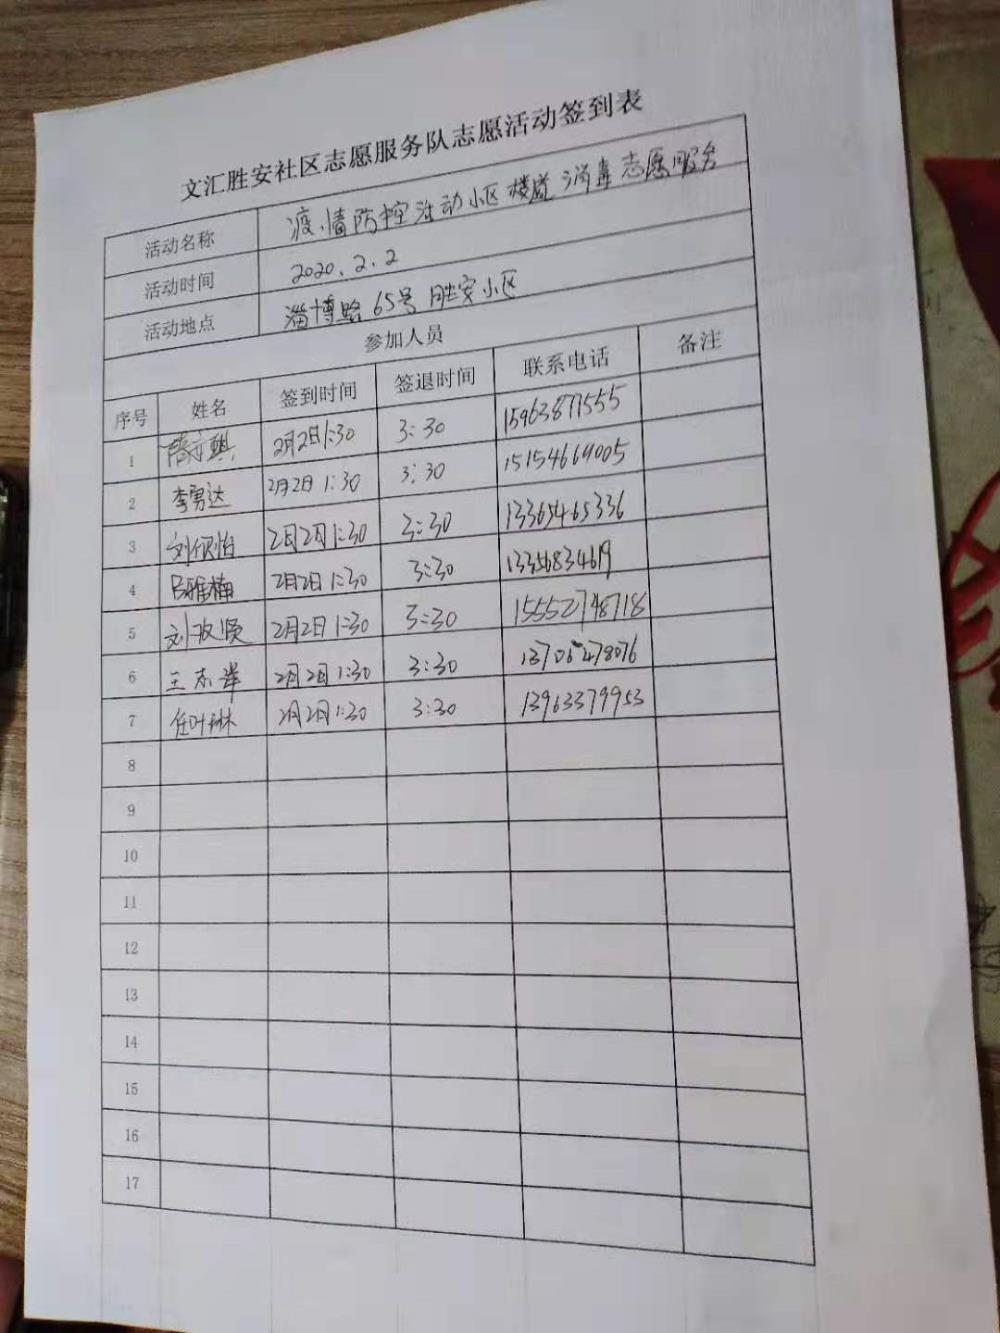 文汇胜安社区志愿服务队志愿活动签到表
活动名称 疫情防控活动小区楼道消毒志愿服务
活动时间 2020.2.2
活动地点 淄博路65号胜安小区
参加人员
序号 姓名 签到时间 签退时间 联系电话 备注
1 2月2日1:30 3:30 15963877555
2 李勇达 2月2日1:30 3:30 15154669005
3 刘佩怡 2月2日1:30 3:30 13365465336
4 吕雅楠 2月2日1:30 3:30 13356834619
5 刘孜贤 2月2日1:30 3:30 15552748718
6 王志 2月2日1:30 3:30 13706478076
7 任叶琳 2月2日1:30 3:30 13963379953
8
9
10
11
12
13
14
15
16
17